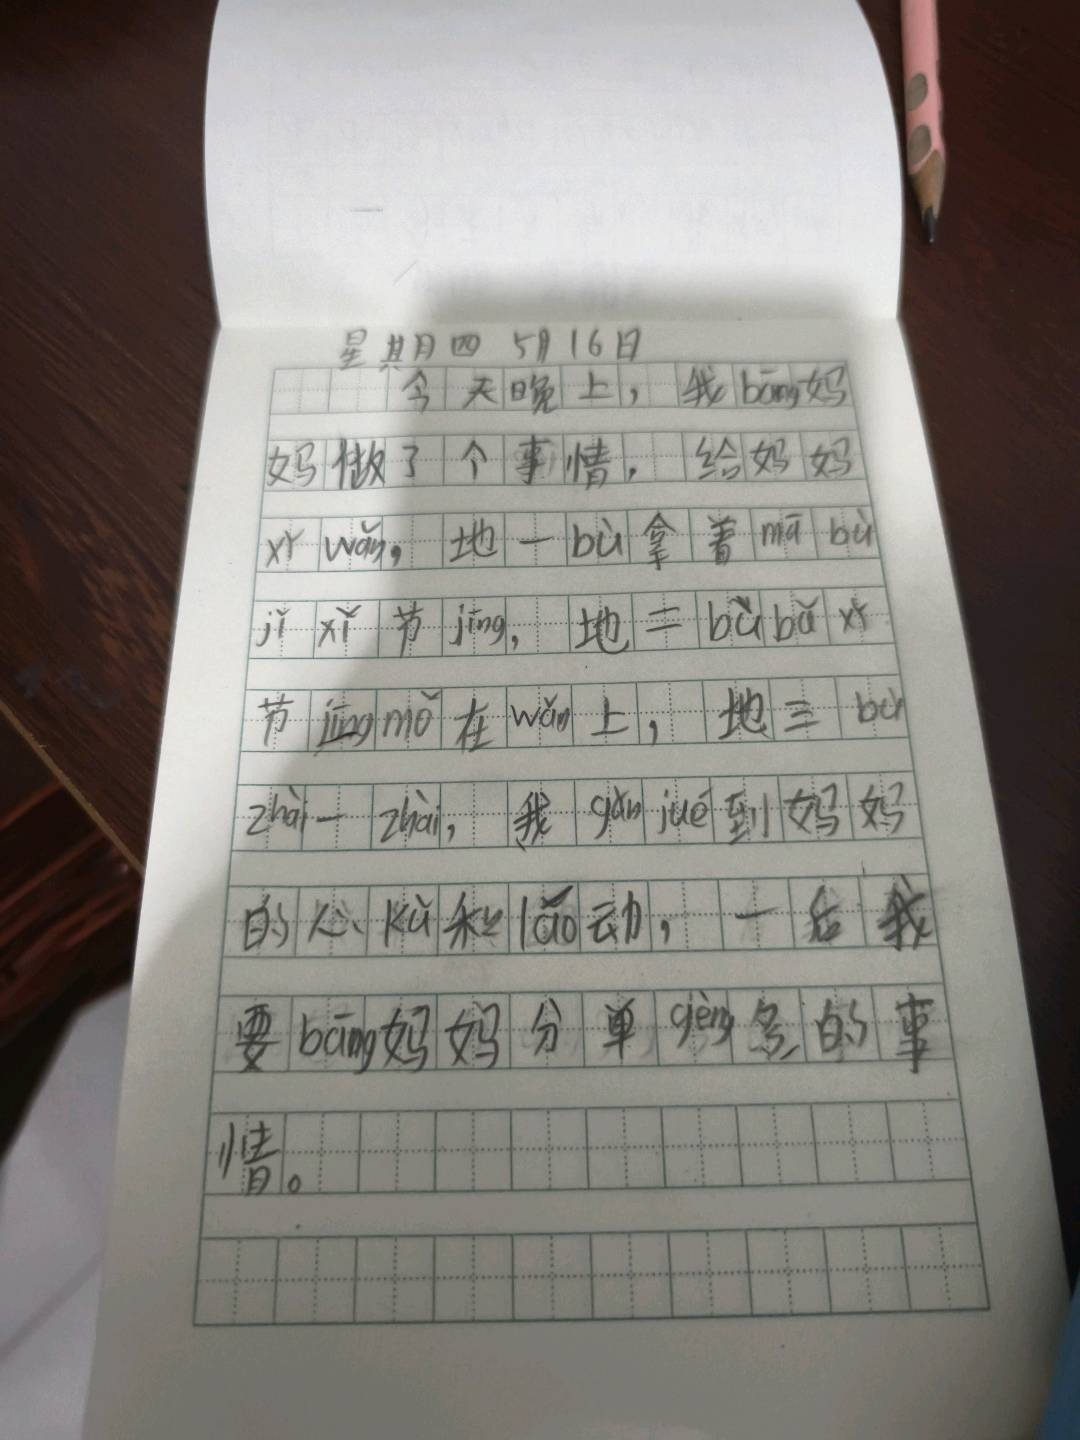 星期四 5月16日
今天晚上，我bāng妈
妈做了个事情，给妈妈
xǐ wǎn，地一bù拿着mā bù
jǐ xǐ 节 jīng，地二bù bǎ xǐ
节jīng mǒ在wǎn上，地三bù
zhài一zhài，我gǎn jué到妈妈
的心kǔ和láo动，一后我
要bāng妈妈分单gèng多的事
情。